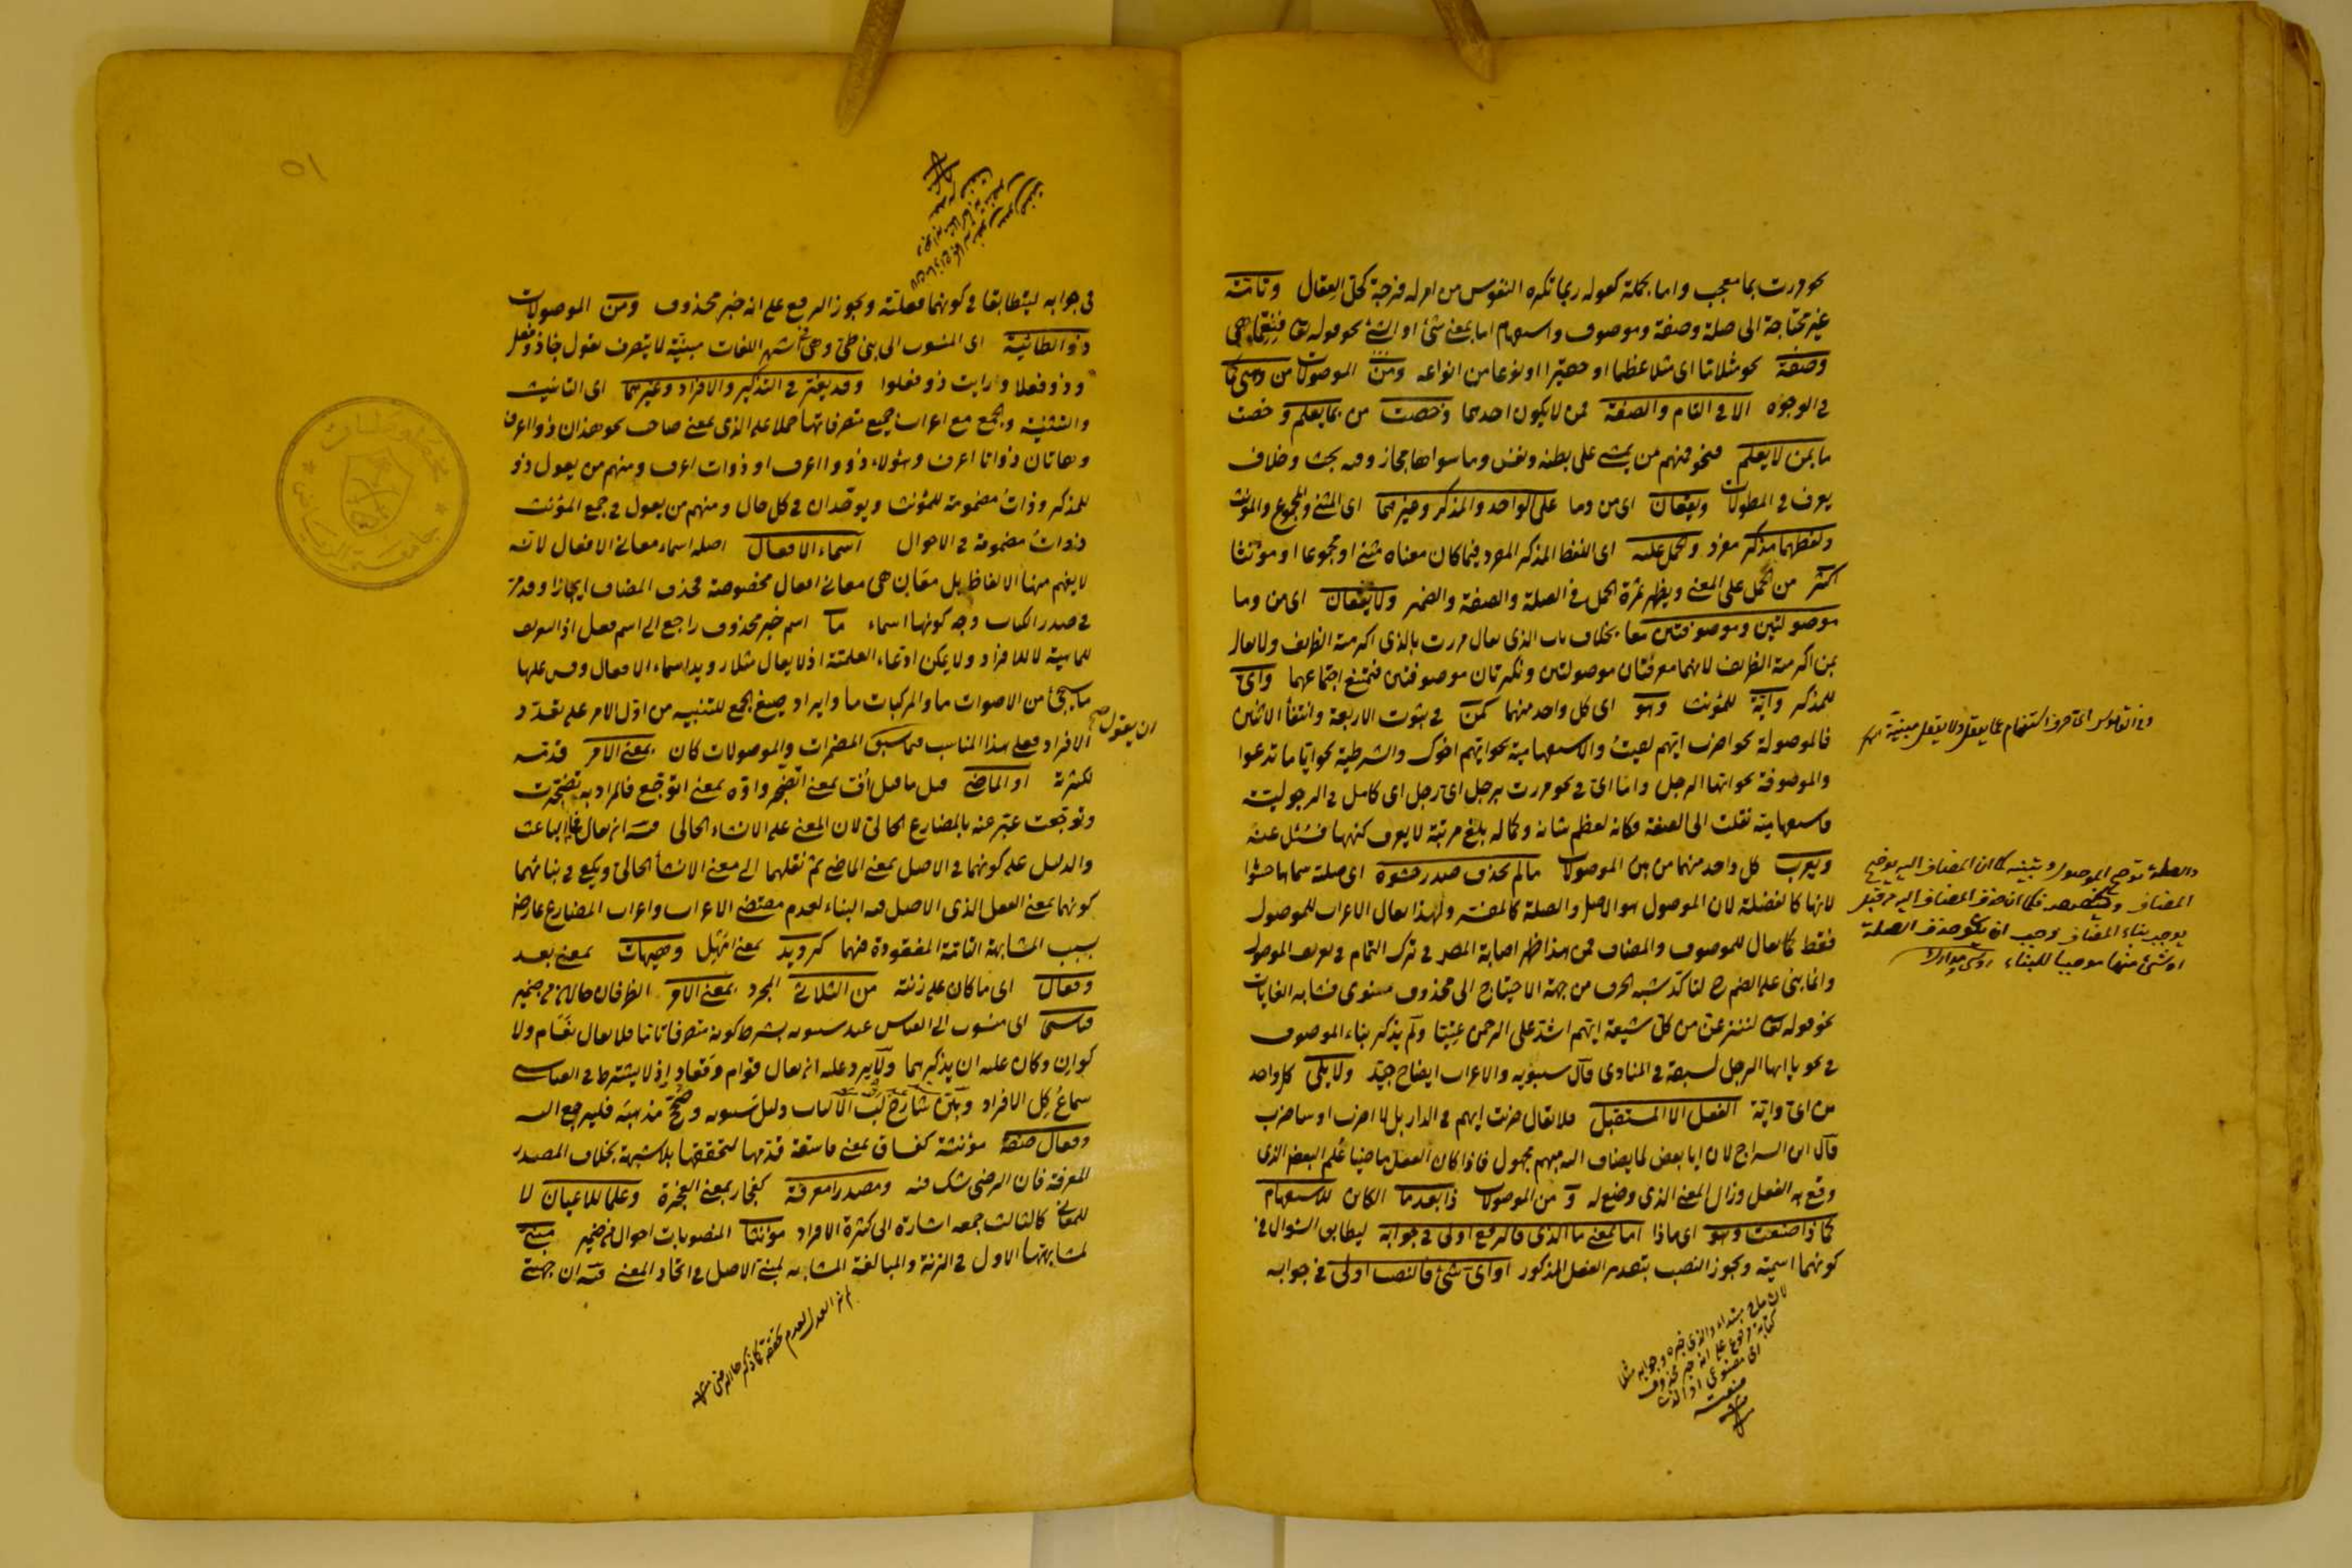 نحو مررت بما معجب واما بجملة كقوله ربما تكره النفوس من امر له فرجة كحل العقال وتامة
غير محتاجة الى صلة وصفة وموصوف واستفهام اما بمعنى شئ او الشئ نحو قوله تعا فنعما هى
وصفة نحو مثلا ما اى مثلا عظيما او حقيرا او نوعا من انواعه ومن الموصولات من وهى كما
فى الوجوه الا فى التام والصفة فمن لا يكون احدهما وخصت من بما يعلم وخصت
ما بمن لا يعلم فنحو فمنهم من يمشى على بطنه ونفس وما سواها مجاز وفيه بحث وخلاف
يعرف فى المطولات ويقعان اى من وما على الواحد والمذكر وغيرهما اى المثنى والمجموع والمؤنث
ولفظهما مذكر مفرد والحمل عليه اى اللفظ المذكر المفرد فيما كان معناه مثنى او مجموعا او مؤنثا
اكثر من الحمل على المعنى ويظهر ثمرة الحمل فى الصلة والصفة والضمير ولا يقعان اى من وما
موصولتين وموصوفتين معا بخلاف باب الذى يقال مررت بالذى اكرمته الظريف ولا يقال
بمن اكرمته الظريف لانهما معرفتان موصولتين ونكرتان موصوفتين فيمتنع اجتماعهما واى
للمذكر واية للمؤنث وهو اى كل واحد منهما كمن فى ثبوت الاربعة وانتفأ الاثنين
فالموصولة نحو اضرب ايهم لقيت والاستفهامية نحو ايهم اخوك والشرطية نحو ايا ما تدعوا
والموصوفة نحو ايها الرجل واما اى فى نحو مررت برجل اى رجل اى كامل فى الرجولية
فاستفهامية نقلت الى الصفة فكانه لعظم شانه وكماله بلغ مرتبة لا يعرف كنهها فسئل عنه
ويعرب كل واحد منهما من بين الموصولات ما لم يحذف صدر حشوه اى صلته سماها حشوا
لانها كالفضلة لان الموصول هو الاصل والصلة كالمفسر ولهذا يقال الاعراب للموصول
فقط كما يقال للموصوف والمضاف فمن هذا ظهر اصابة المصنف فى ترك التمام فى تعريف الموصول
وانما بنى على الضم ح لتاكد شبه الحرف من جهة الاحتياج الى محذوف منوى فشابه الغايات
نحو قوله تعا لننزعن من كل شيعة ايهم اشد على الرحمن عتيا ولم يذكر بناء الموصوف
فى نحو يا ايها الرجل لسبقه فى المنادى قال سيبويه والاعراب ايضاح جيد ولا يلى كل واحد
من اى واية الفعل الا المستقبل فلا يقال ضربت ايهم فى الدار بل لا اضرب او ساضرب
قال ابن السراج لان ايا بعض لما يضاف اليه مبهم مجهول فاذا كان الفعل ماضيا علم البعض الذى
وقع به الفعل وزال المعنى الذى وضع له و من الموصولات ذا بعد ما الكائن للاستفهام
كماذا صنعت وهو اى ماذا اما بمعنى ما الذى فالرفع اولى فى جوابه ليطابق السؤال فى
كونهما اسمية ويجوز النصب بتقدير الفعل المذكور او اى شئ فالنصب اولى فى جوابه
وفى القاموس اى حرف استفهام عما يعقل ولا يعقل مبنية
والصلة توضح الموصول وتبينه كما ان المضاف اليه يوضح
المضاف ويخصصه فكما ان حذف المضاف اليه
يوجب بناء المضاف وجب ان يكون حذف الصلة
او شئ منها موجبا للبناء
لان ما مبتداء والذى خبره وجوابه مثلا
كتابة مرفوع على انه خبر محذوف
صنعت
فى جوابه ليتطابقا فى كونهما فعلية ويجوز الرفع على انه خبر محذوف ومن الموصولات
ذو الطائية اى المنسوب الى بنى طئ وهى فى اشهر اللغات مبنية لا يتصرف تقول جاء ذو فعل
وذو فعلا ورايت ذو فعلوا وقد يغير فى التذكير والافراد وغيرهما اى التانيث
والتثنية والجمع مع اعراب جميع متصرفاتها حملا على الذى بمعنى صاحب نحو هذان ذوا اعرف
وهاتان ذواتا اعرف وهؤلاء ذوو اعرف او ذوات اعرف ومنهم من يقول ذو
للمذكر وذات مضمومة للمؤنث ويوحدان فى كل حال ومنهم من يقول فى جمع المؤنث
ذوات مضمومة فى الاحوال اسماء الافعال اصله اسماء معانى الافعال لانه
لا يفهم منها الالفاظ بل معان هى معانى افعال مخصوصة فحذف المضاف ايجازا وقد مر
فى صدر الكتاب وجه كونها اسماء ما اسم خبر محذوف راجع الى اسم فعل اذ التعريف
للماهية لا للافراد ولا يمكن ادعاء العلمية اذ لا يقال مثلا رويد اسماء الافعال وقس عليها
ما يجئ من الاصوات ما والمركبات ما وايراد صيغ الجمع للتنبيه من اول الامر على تعدد
الافراد فعلى هذا المناسب فيما سبق المضمرات والموصولات كان بمعنى الامر قدمه
ان يقول صح
لكثرته او الماضى قيل ما قيل اف بمعنى اتضجر واوه بمعنى اتوجع فالمراد به تضجرت
وتوجعت عبر عنه بالمضارع الحالى لان المعنى على الانشاء الحالى فيه انه يقال فما الباعث
والدليل على كونهما فى الاصل بمعنى الماضى ثم نقلهما الى معنى الانشأ الحالى ويكفى فى بنائهما
كونهما بمعنى الفعل الذى الاصل فيه البناء لعدم مقتضى الاعراب واعراب المضارع عارض
بسبب المشابهة التامة المفقودة فيهما كرويد بمعنى امهل وهيهات بمعنى بعد
وفعال اى ما كان على زنته من الثلاثى المجرد بمعنى الامر الظرفان حالان من ضمير
قياسى اى منسوب الى القياس عند سيبويه بشرط كونه متصرفا تاما فلا يقال نعام ولا
كوان وكان عليه ان يذكرهما ولا يرد عليه انه يقال قوام وقعاد اذ لا يشترط فى القياسى
سماع كل الافراد وبين شارح لب الالباب دليل سيبويه وصحح مذهبه فليرجع اليه
وفعال صفة مؤنثة كفساق بمعنى فاسقة قدمها لتحققها بلا شبهة بخلاف المصدر
المعرفة فان الرضى شك فيه ومصدرا معرفة كفجار بمعنى الفجرة وعلما للاعيان لا
للمعانى كالثالث جمعه اشارة الى كثرة الافراد مؤنثا المنصوبات احوال من ضمير مبنى
لمشابهتها الاول فى الزنة والمبالغة المشابه لمبنى الاصل فى اتحاد المعنى فيه ان جهتى
مخطوطات
جامعة الرياض
٥١